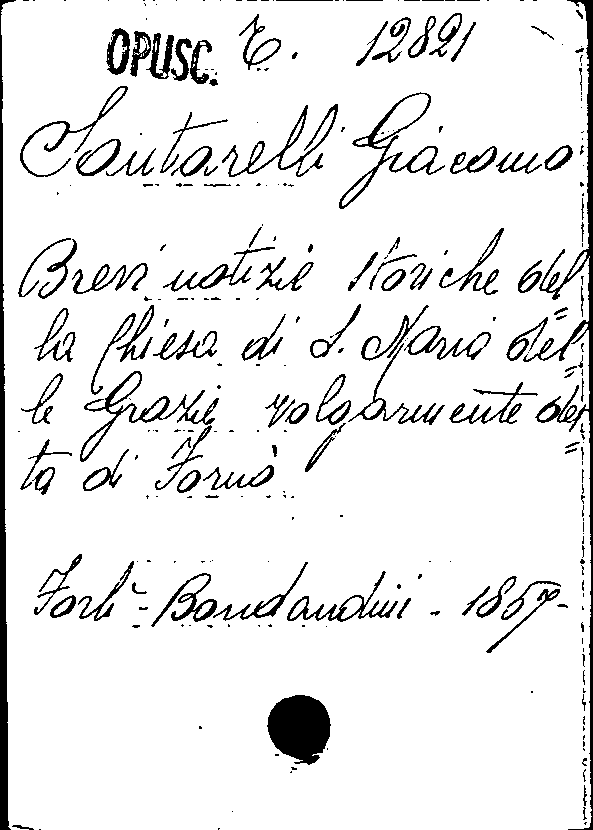 OPUSC. C. 12821
Santarelli Giacomo
Brevi notizie storiche del=
la Chiesa di S. Maria del=
le Grazie volgarmente det=
ta di Fornò
Forlì - Bordandini - 1857 -